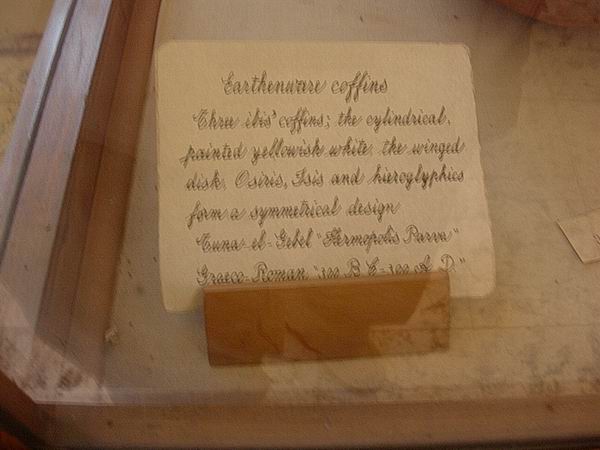 Earthenware coffins
Three ibis' coffins; the cylindrical,
painted yellowish white. the winged
disk, Osiris, Isis and hieroglyphics
form a symmetrical design
Tuna-el-Gebel "Hermopolis Parva"
Graeco-Roman "300 B.C-300 A.D."